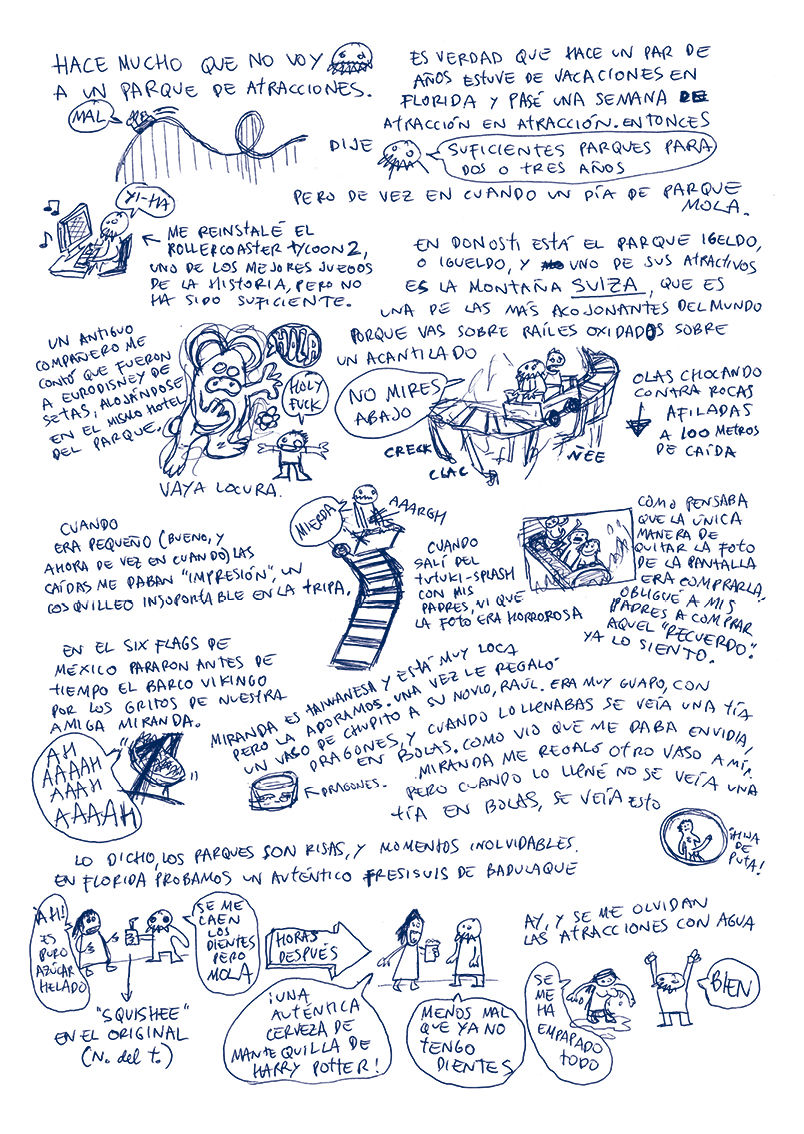 HACE MUCHO QUE NO VOY
A UN PARQUE DE ATRACCIONES.
MAL
ES VERDAD QUE HACE UN PAR DE
AÑOS ESTUVE DE VACACIONES EN
FLORIDA Y PASÉ UNA SEMANA DE
ATRACCIÓN EN ATRACCIÓN. ENTONCES
DIJE
SUFICIENTES PARQUES PARA
DOS O TRES AÑOS
PERO DE VEZ EN CUANDO UN DÍA DE PARQUE
MOLA.
YI-HA
ME REINSTALÉ EL
ROLLERCOASTER TYCOON 2,
UNO DE LOS MEJORES JUEGOS
DE LA HISTORIA, PERO NO
HA SIDO SUFICIENTE.
EN DONOSTI ESTÁ EL PARQUE IGELDO,
O IGUELDO, Y UNO DE SUS ATRACTIVOS
ES LA MONTAÑA SUIZA, QUE ES
UNA DE LAS MÁS ACOJONANTES DEL MUNDO
PORQUE VAS SOBRE RAÍLES OXIDADOS SOBRE
UN ACANTILADO
UN ANTIGUO
COMPAÑERO ME
CONTÓ QUE FUERON
A EURODISNEY DE
SETAS, ALOJÁNDOSE
EN EL MISMO HOTEL
DEL PARQUE.
HOLA
HOLY
FUCK
VAYA LOCURA.
NO MIRES
ABAJO
CRECK
CLAC
ÑEE
OLAS CHOCANDO
CONTRA ROCAS
AFILADAS
A 100 METROS
DE CAÍDA
CUANDO
ERA PEQUEÑO (BUENO, Y
AHORA DE VEZ EN CUANDO) LAS
CAÍDAS ME DABAN "IMPRESIÓN", UN
COSQUILLEO INSOPORTABLE EN LA TRIPA.
MIERDA
AAARGH
CUANDO
SALÍ DEL
TUTUKI-SPLASH
CON MIS
PADRES, VI QUE
LA FOTO ERA HORROROSA
COMO PENSABA
QUE LA ÚNICA
MANERA DE
QUITAR LA FOTO
DE LA PANTALLA
ERA COMPRARLA,
OBLIGUÉ A MIS
PADRES A COMPRAR
AQUEL "RECUERDO".
YA LO SIENTO.
EN EL SIX FLAGS DE
MÉXICO PARARON ANTES DE
TIEMPO EL BARCO VIKINGO
POR LOS GRITOS DE NUESTRA
AMIGA MIRANDA.
AH
AAAAH
AAAH
AAAAH
MIRANDA ES TAIWANESA Y ESTÁ MUY LOCA
PERO LA ADORAMOS. UNA VEZ LE REGALÓ
UN VASO DE CHUPITO A SU NOVIO, RAÚL. ERA MUY GUAPO, CON
DRAGONES, Y CUANDO LO LLENABAS SE VEÍA UNA TÍA
EN BOLAS. COMO VIO QUE ME DABA ENVIDIA,
MIRANDA ME REGALÓ OTRO VASO A MÍ.
PERO CUANDO LO LLENÉ NO SE VEÍA UNA
TÍA EN BOLAS, SE VEÍA ESTO
DRAGONES.
¡HIJA
DE
PUTA!
LO DICHO, LOS PARQUES SON RISAS, Y MOMENTOS INOLVIDABLES.
EN FLORIDA PROBAMOS UN AUTÉNTICO FRESISUIS DE BADULAQUE
¡AH!
ES
PURO
AZÚCAR
HELADO
SE ME
CAEN
LOS
DIENTES
PERO
MOLA
"SQUISHEE"
EN EL ORIGINAL
(N. del t.)
HORAS
DESPUÉS
¡UNA
AUTÉNTICA
CERVEZA DE
MANTEQUILLA DE
HARRY POTTER!
MENOS MAL
QUE YA NO
TENGO
DIENTES
AY, Y SE ME OLVIDAN
LAS ATRACCIONES CON AGUA
SE
ME
HA
EMPAPADO
TODO
BIEN